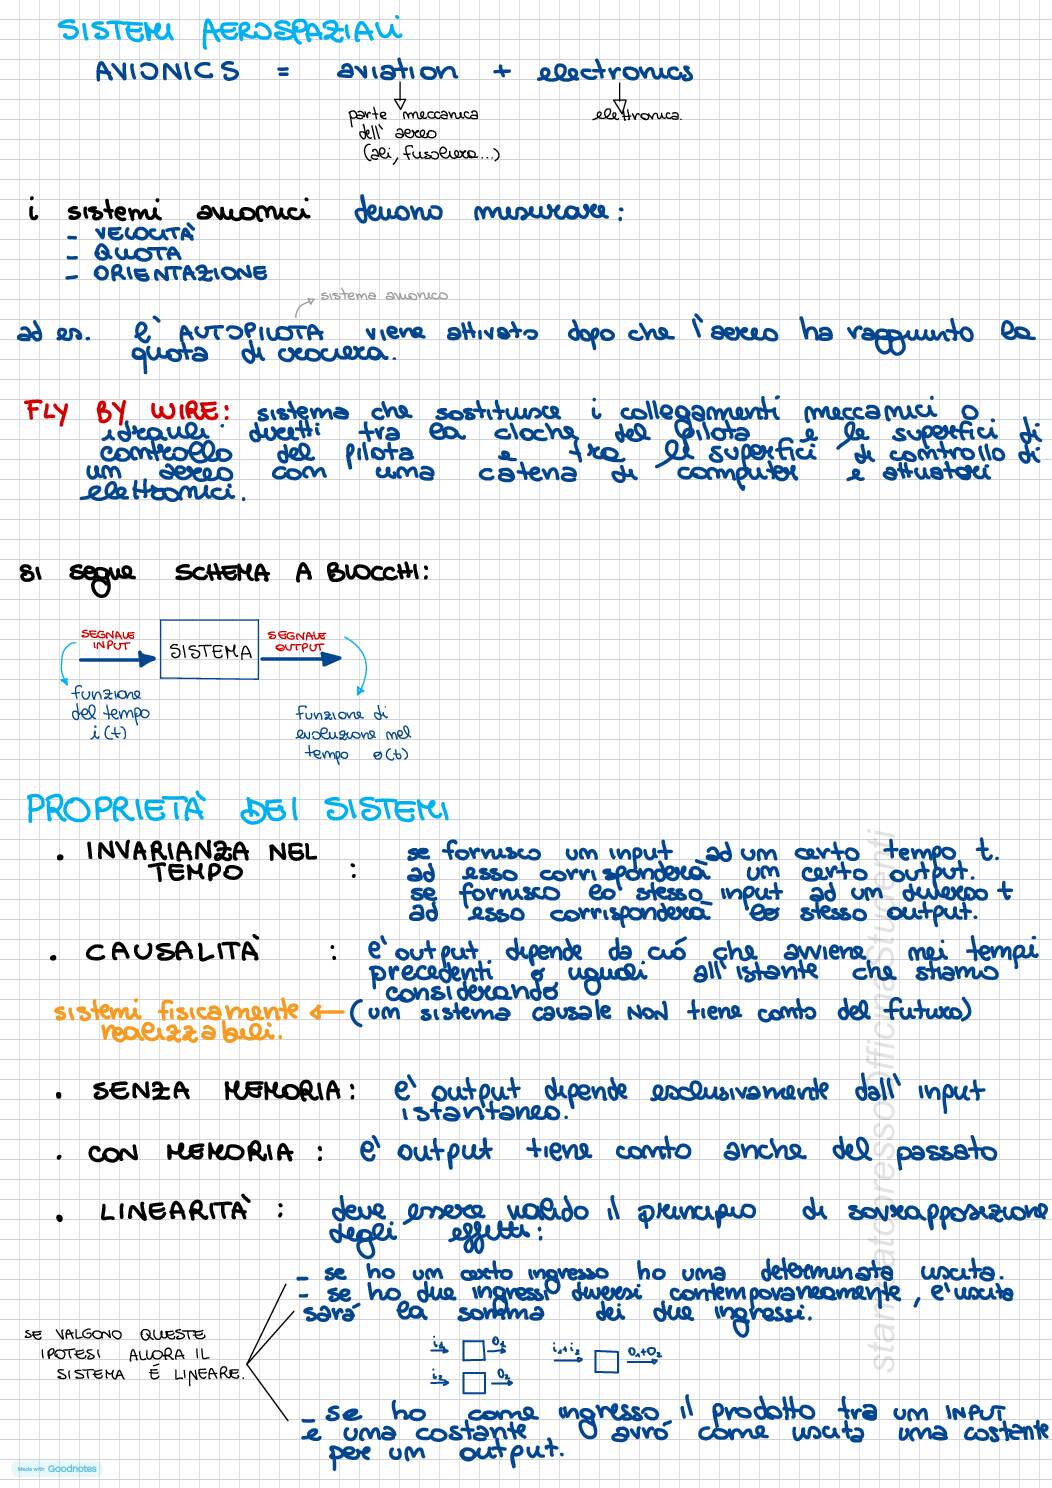 SISTEMI AEROSPAZIALI
AVIONICS = aviation + electronics
parte meccanica elettronica.
dell' aereo
(ali, fusoliera...)
i sistemi avionici devono misurare:
- VELOCITÀ
- QUOTA
- ORIENTAZIONE
sistema avionico
ad es. l' AUTOPILOTA viene attivato dopo che l'aereo ha raggiunto la
quota di crociera.
FLY BY WIRE: sistema che sostituisce i collegamenti meccanici o
idraulici diretti tra la cloche del pilota e le superfici di
controllo del pilota e tra le superfici di controllo di
un aereo con una catena di computer e attuatori
elettronici.
si segue SCHEMA A BLOCCHI:
SEGNALE
INPUT
SISTEMA
SEGNALE
OUTPUT
funzione
del tempo
i(t)
funzione di
evoluzione nel
tempo o(t)
PROPRIETÀ DEI SISTEMI
• INVARIANZA NEL
TEMPO :
se fornisco un input ad un certo tempo t.
ad esso corrisponderà un certo output.
se fornisco lo stesso input ad un diverso t
ad esso corrisponderà lo stesso output.
• CAUSALITÀ : l'output dipende da ció che avviene nei tempi
precedenti o uguali all'istante che stiamo
considerando
sistemi fisicamente ← (un sistema causale NON tiene conto del futuro)
realizzabili.
• SENZA MEMORIA: l' output dipende esclusivamente dall' input
istantaneo.
• CON MEMORIA : l' output tiene conto anche del passato
• LINEARITÀ : deve essere valido il principio di sovrapposizione
degli effetti:
- se ho un certo ingresso ho una determinata uscita.
- se ho due ingressi diversi contemporaneamente, l'uscita
sará la somma dei due ingressi.
SE VALGONO QUESTE
IPOTESI ALLORA IL
SISTEMA É LINEARE.
i₁ O₁ i₁+i₂ O₁+O₂
i₂ O₂
- se ho come ingresso il prodotto tra un INPUT
e una costante avró come uscita una costante
per un output.
Made with Goodnotes
stampato presso OfficinaStudenti